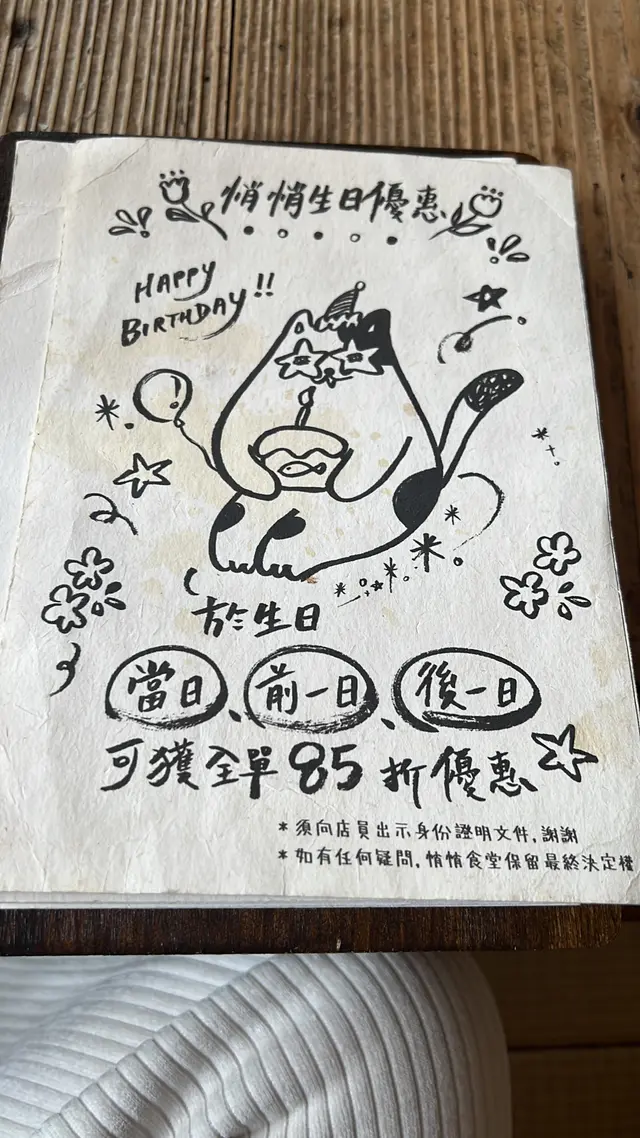 悄悄生日優惠
HAPPY
BIRTHDAY!!
於生日
當日、前一日、後一日
可獲全單85折優惠
*須向店員出示身份證明文件,謝謝
*如有任何疑問,悄悄食堂保留最終決定權